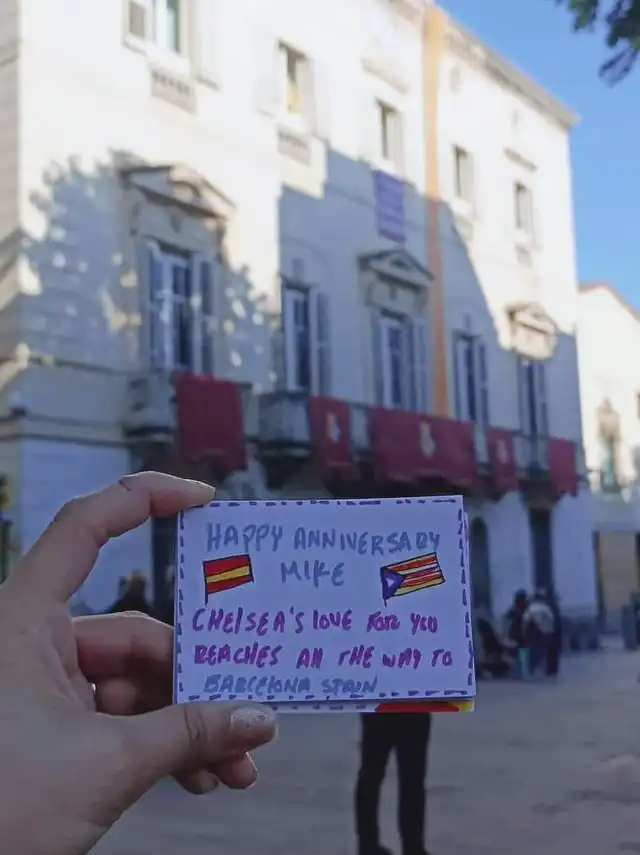 HAPPY ANNIVERSARY
MIKE
CHElSEA'S lOVE FOR YOU
REACHES All THE WAY TO
BARCElONA SPAIN